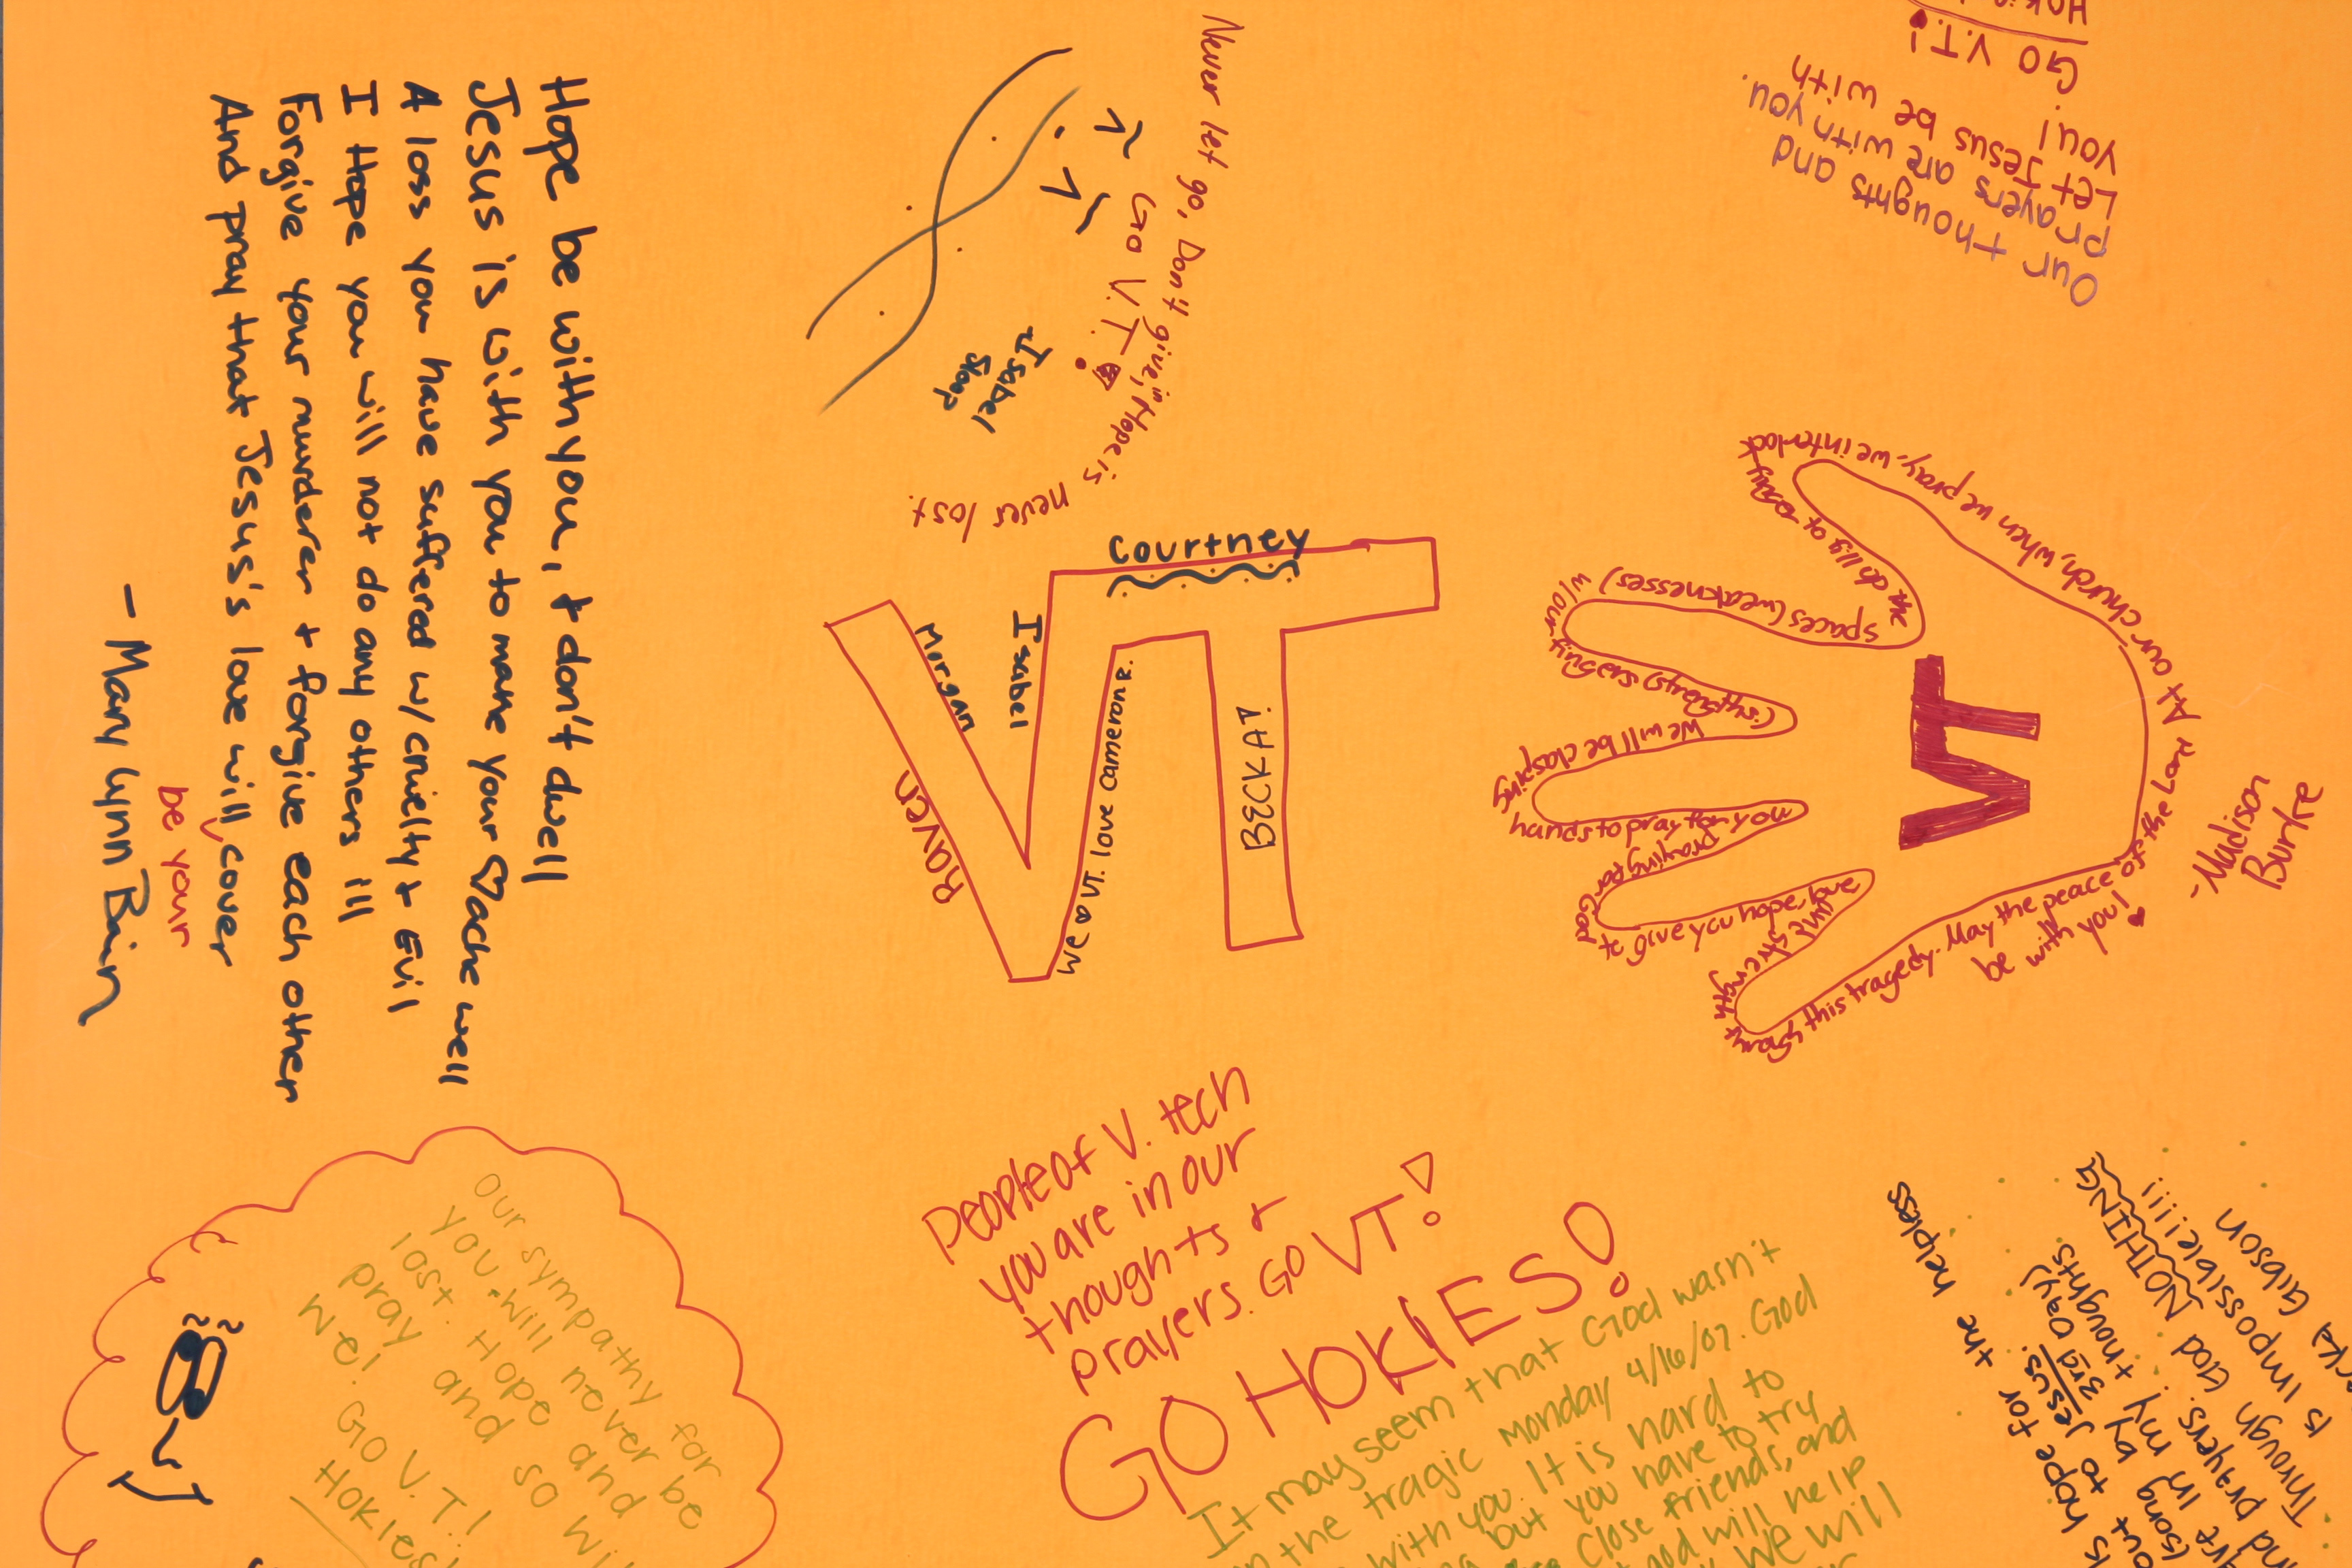 Hope be with you, + don't dwell
Jesus is with you to make your ♡ache well
A loss you have suffered w/ cruelty + Evil
I Hope you will not do any others ill
Forgive your murderer + forgive each other
And pray that Jesus's love will cover
be your
- Mary Lynn Bain
Never let go, Don't give in, Hope is never lost.
Go V.T.!
- Isabel
Sloop
Our thoughts and
prayers are with you.
Let Jesus be with
you!
GO V.T.!
Courtney
Morgan
Isabel
Raven
BECKAH!
We ♡ VT. love Camerana.
VT
At our church, when we pray, we interlock
our fingers to fill
the spaces (weaknesses)
w/ our fingers
(strengths)
We will be clasping
hands to pray for you
praying for
God
to give you hope, love
and strength
through this tragedy. May the peace of the Lord
be with you! ♥
- Madison
Burke
People of V. tech
you are in our
thoughts +
prayers. GO VT!
GO HOKIES!
It may seem that God wasn't
the tragic Monday 4/16/07. God
with you. It is hard to
but you have to try
close friends, and
God will help
We will
Our sympathy for
you. Will never be
lost. Hope and
pray and so
We! GO V.T.!
Hokies
hope for the helpless
to Jesus.
by 3rd Day)
in my thoughts
prayers.
Through God NOTHING
is impossible!!!!
Gibson